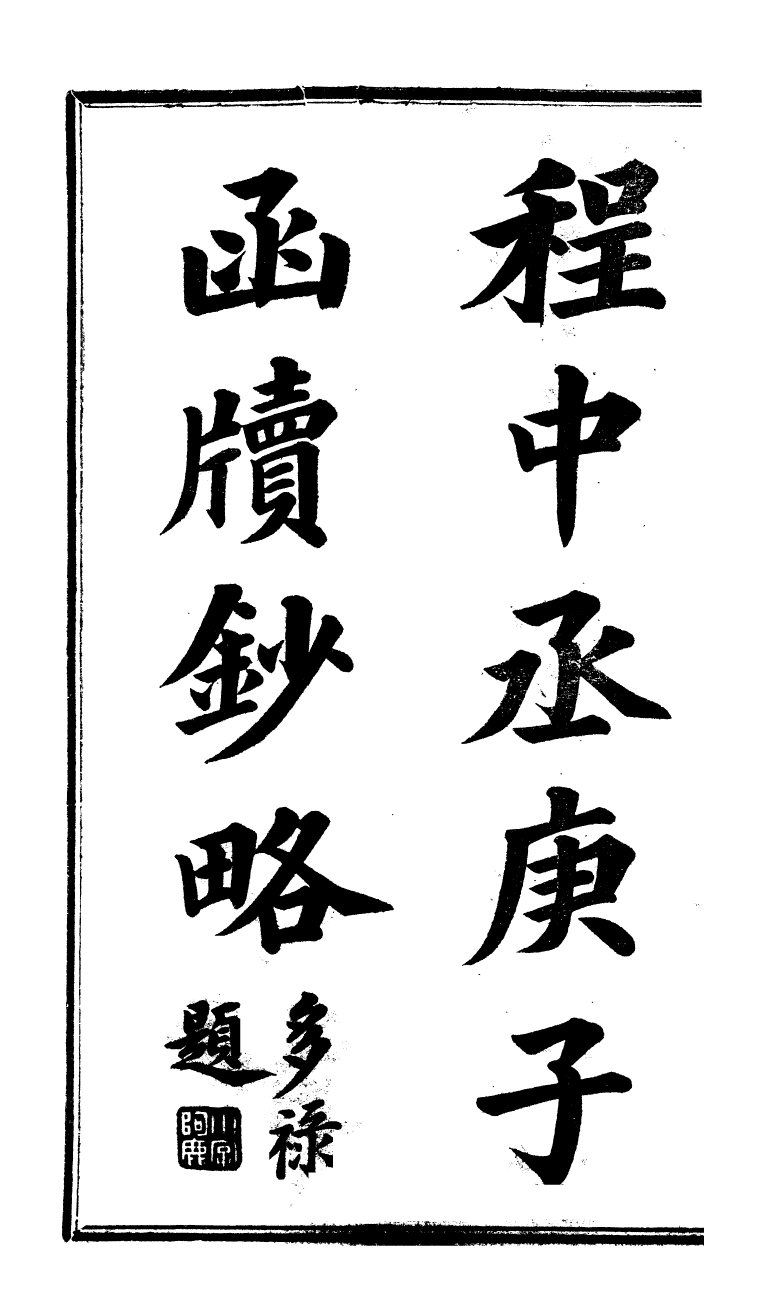 程中丞庚子
函牘鈔略
多祿
題